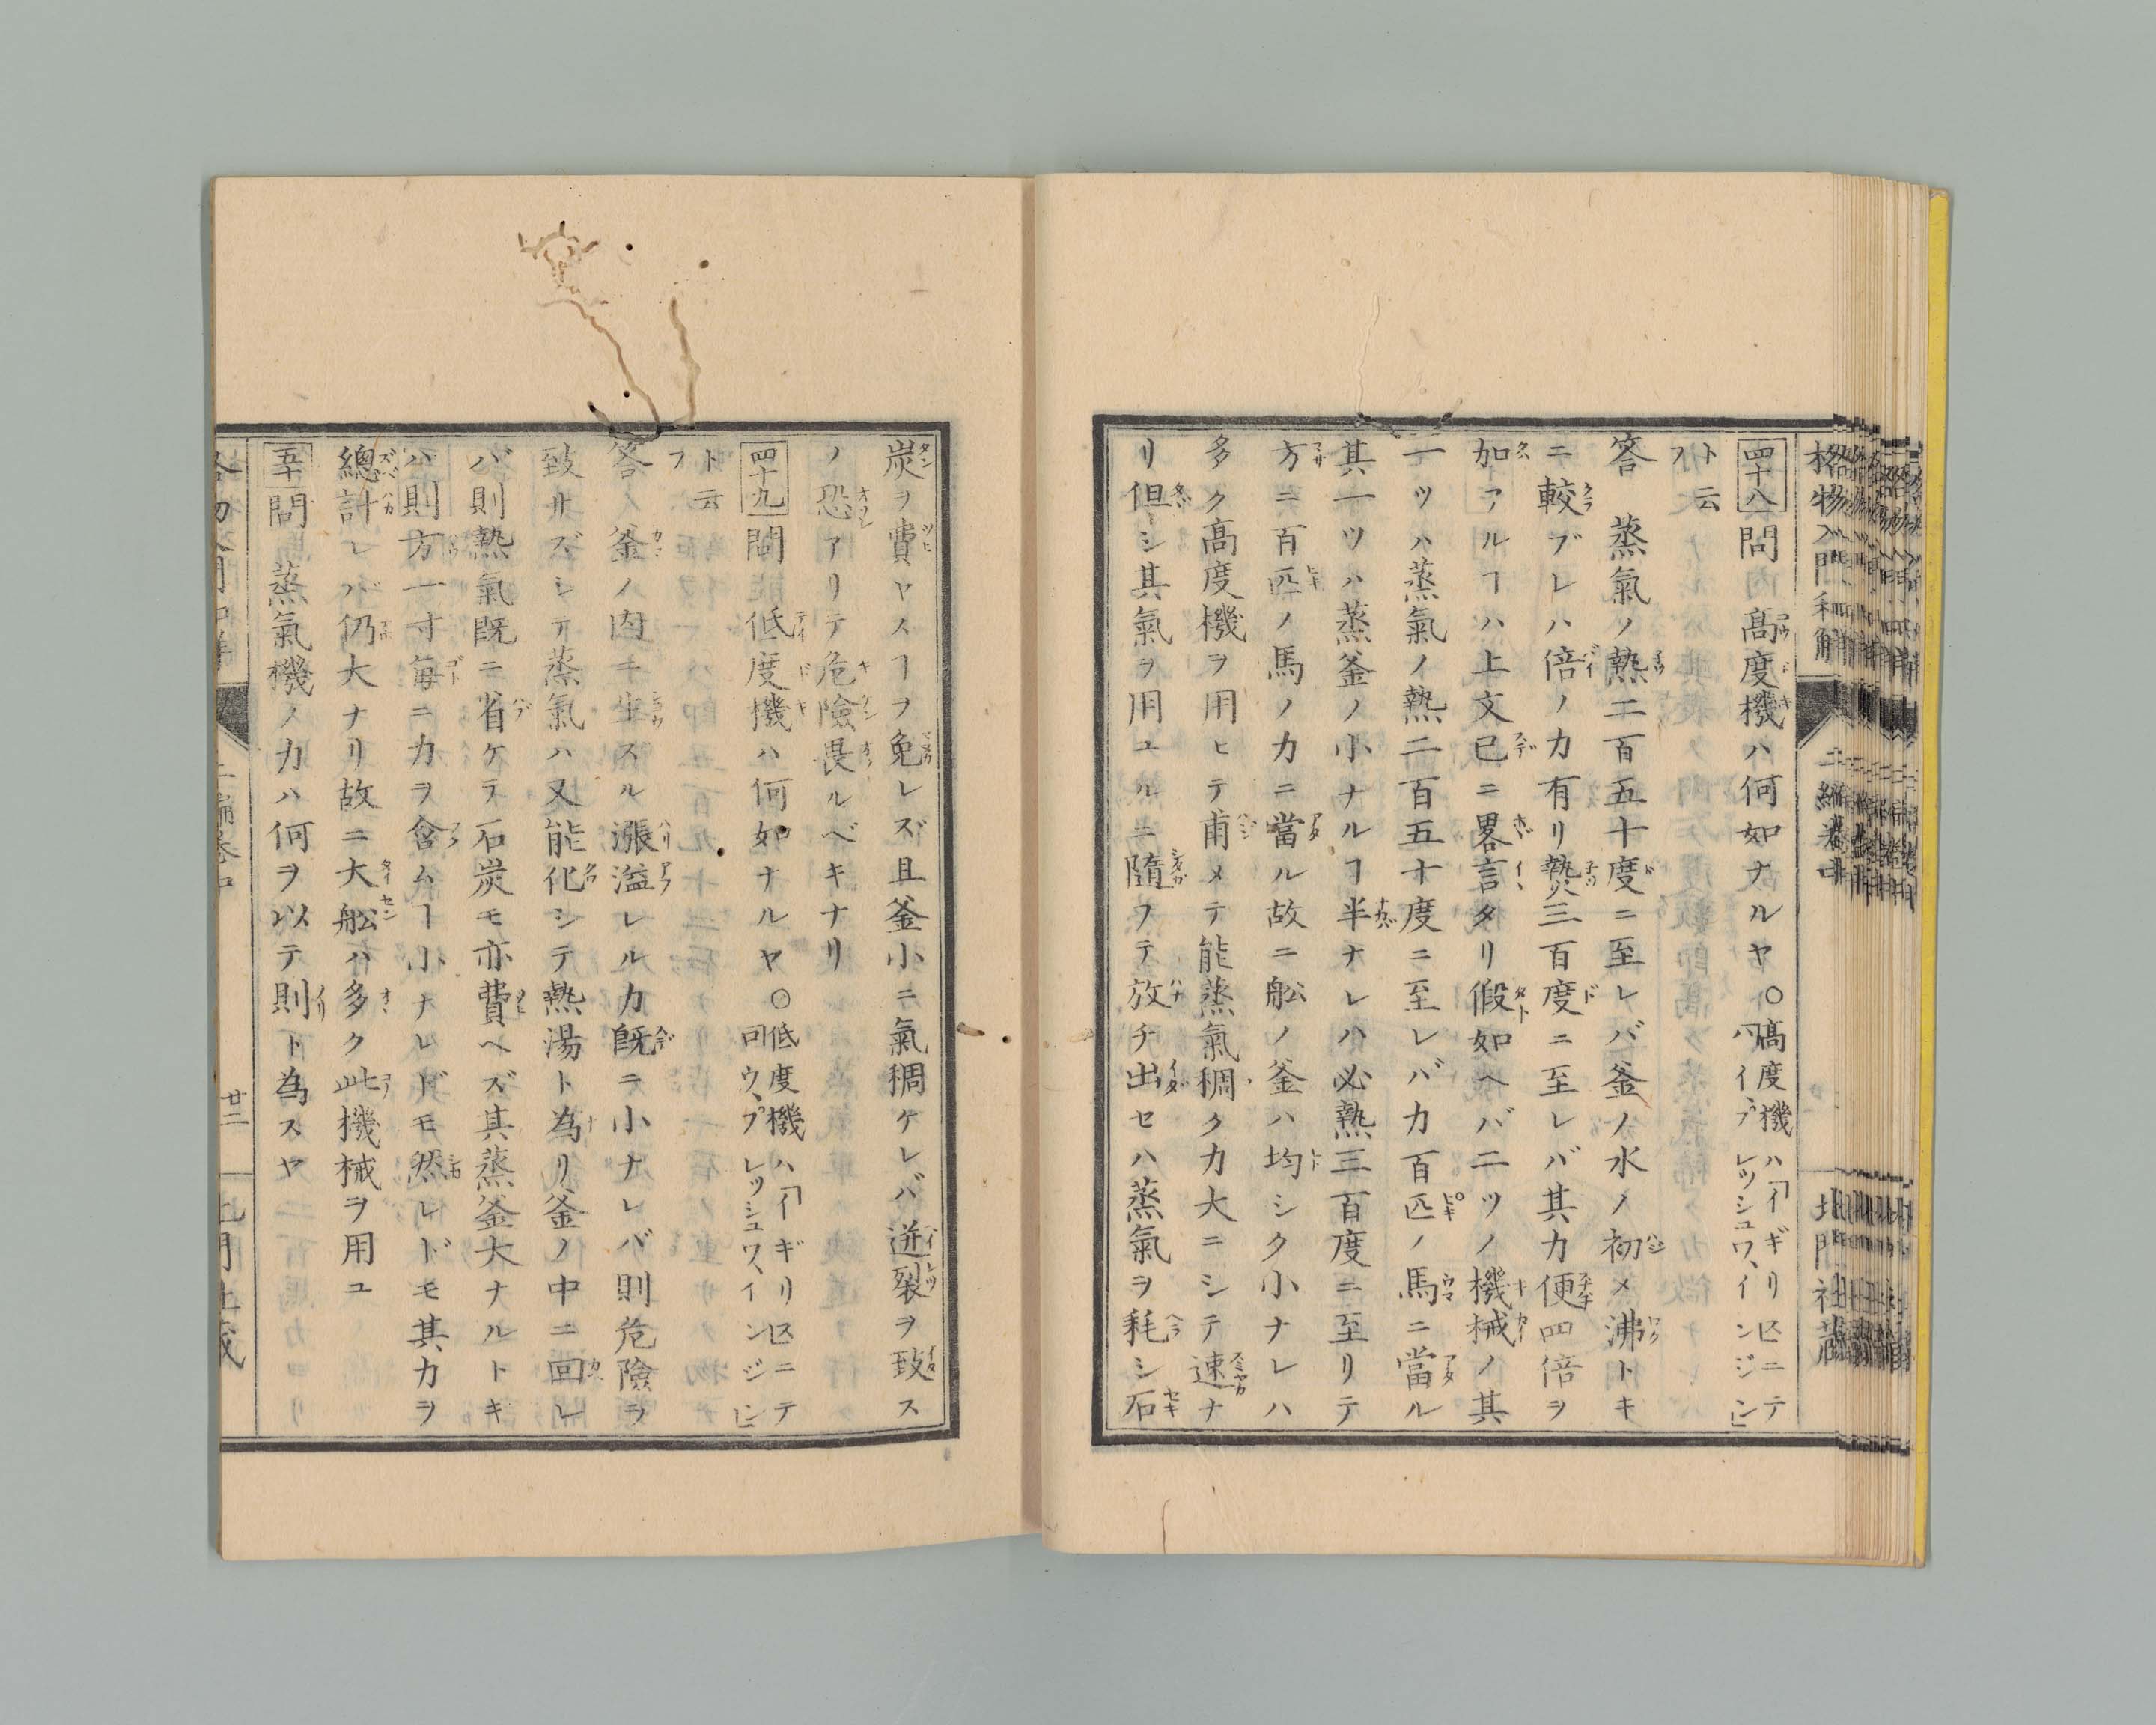 格物入門和解 二編卷中 北門社藏
四十八 問 高度機ハ何如ナルヤ○高度機ハ「イギリスニテハイ、プレッシュワ、インジン」
ト云フ
答 蒸氣ノ熱二百五十度ニ至レバ釜ノ水ノ初メ沸トキ
ニ較ブレハ倍ノ力有リ熱三百度ニ至レバ其力便四倍ヲ
加フルヿハ上文已ニ畧言タリ假如ヘバ二ツノ機械ノ其
一ツハ蒸氣ノ熱二百五十度ニ至レバ力百匹ノ馬ニ當ル
其一ツハ蒸釜ノ小ナルヿ半ナレハ必熱三百度ニ至リテ
方ニ百匹ノ馬ノ力ニ當ル故ニ舩ノ釜ハ均シク小ナレハ
多ク高度機ヲ用ヒテ甫メテ能蒸氣稠ク力大ニシテ速ナ
リ但シ其氣ヲ用ユルニ隨フテ放チ出セハ蒸氣ヲ耗シ石
炭ヲ費ヤスヿヲ免レズ且釜小ニ氣稠ケレバ迸裂ヲ致ス
ノ恐アリテ危險畏ルベキナリ
四十九 問 低度機ハ何如ナルヤ○低度機ハ「イギリスニテ同ウ、プレッシュワ、インジン」
ト云フ
答 釜ノ内ニ生スル漲溢レルカ既ニ小ナレバ則危險ヲ
致サズシテ蒸氣ハ又能化シテ熱湯ト為リ釜ノ中ニ回レ
バ則熱氣既ニ省ケテ石炭モ亦費ヘズ其蒸釜大ナルトキ
ハ則方一寸每ニカヲ含ムヿ小ナレドモ然レドモ其力ヲ
總計レバ仍大ナリ故ニ大舩ハ多ク此機械ヲ用ユ
五十 問 蒸氣機ノ力ハ何ヲ以テ則ト為スヤ
二編卷中 廿二